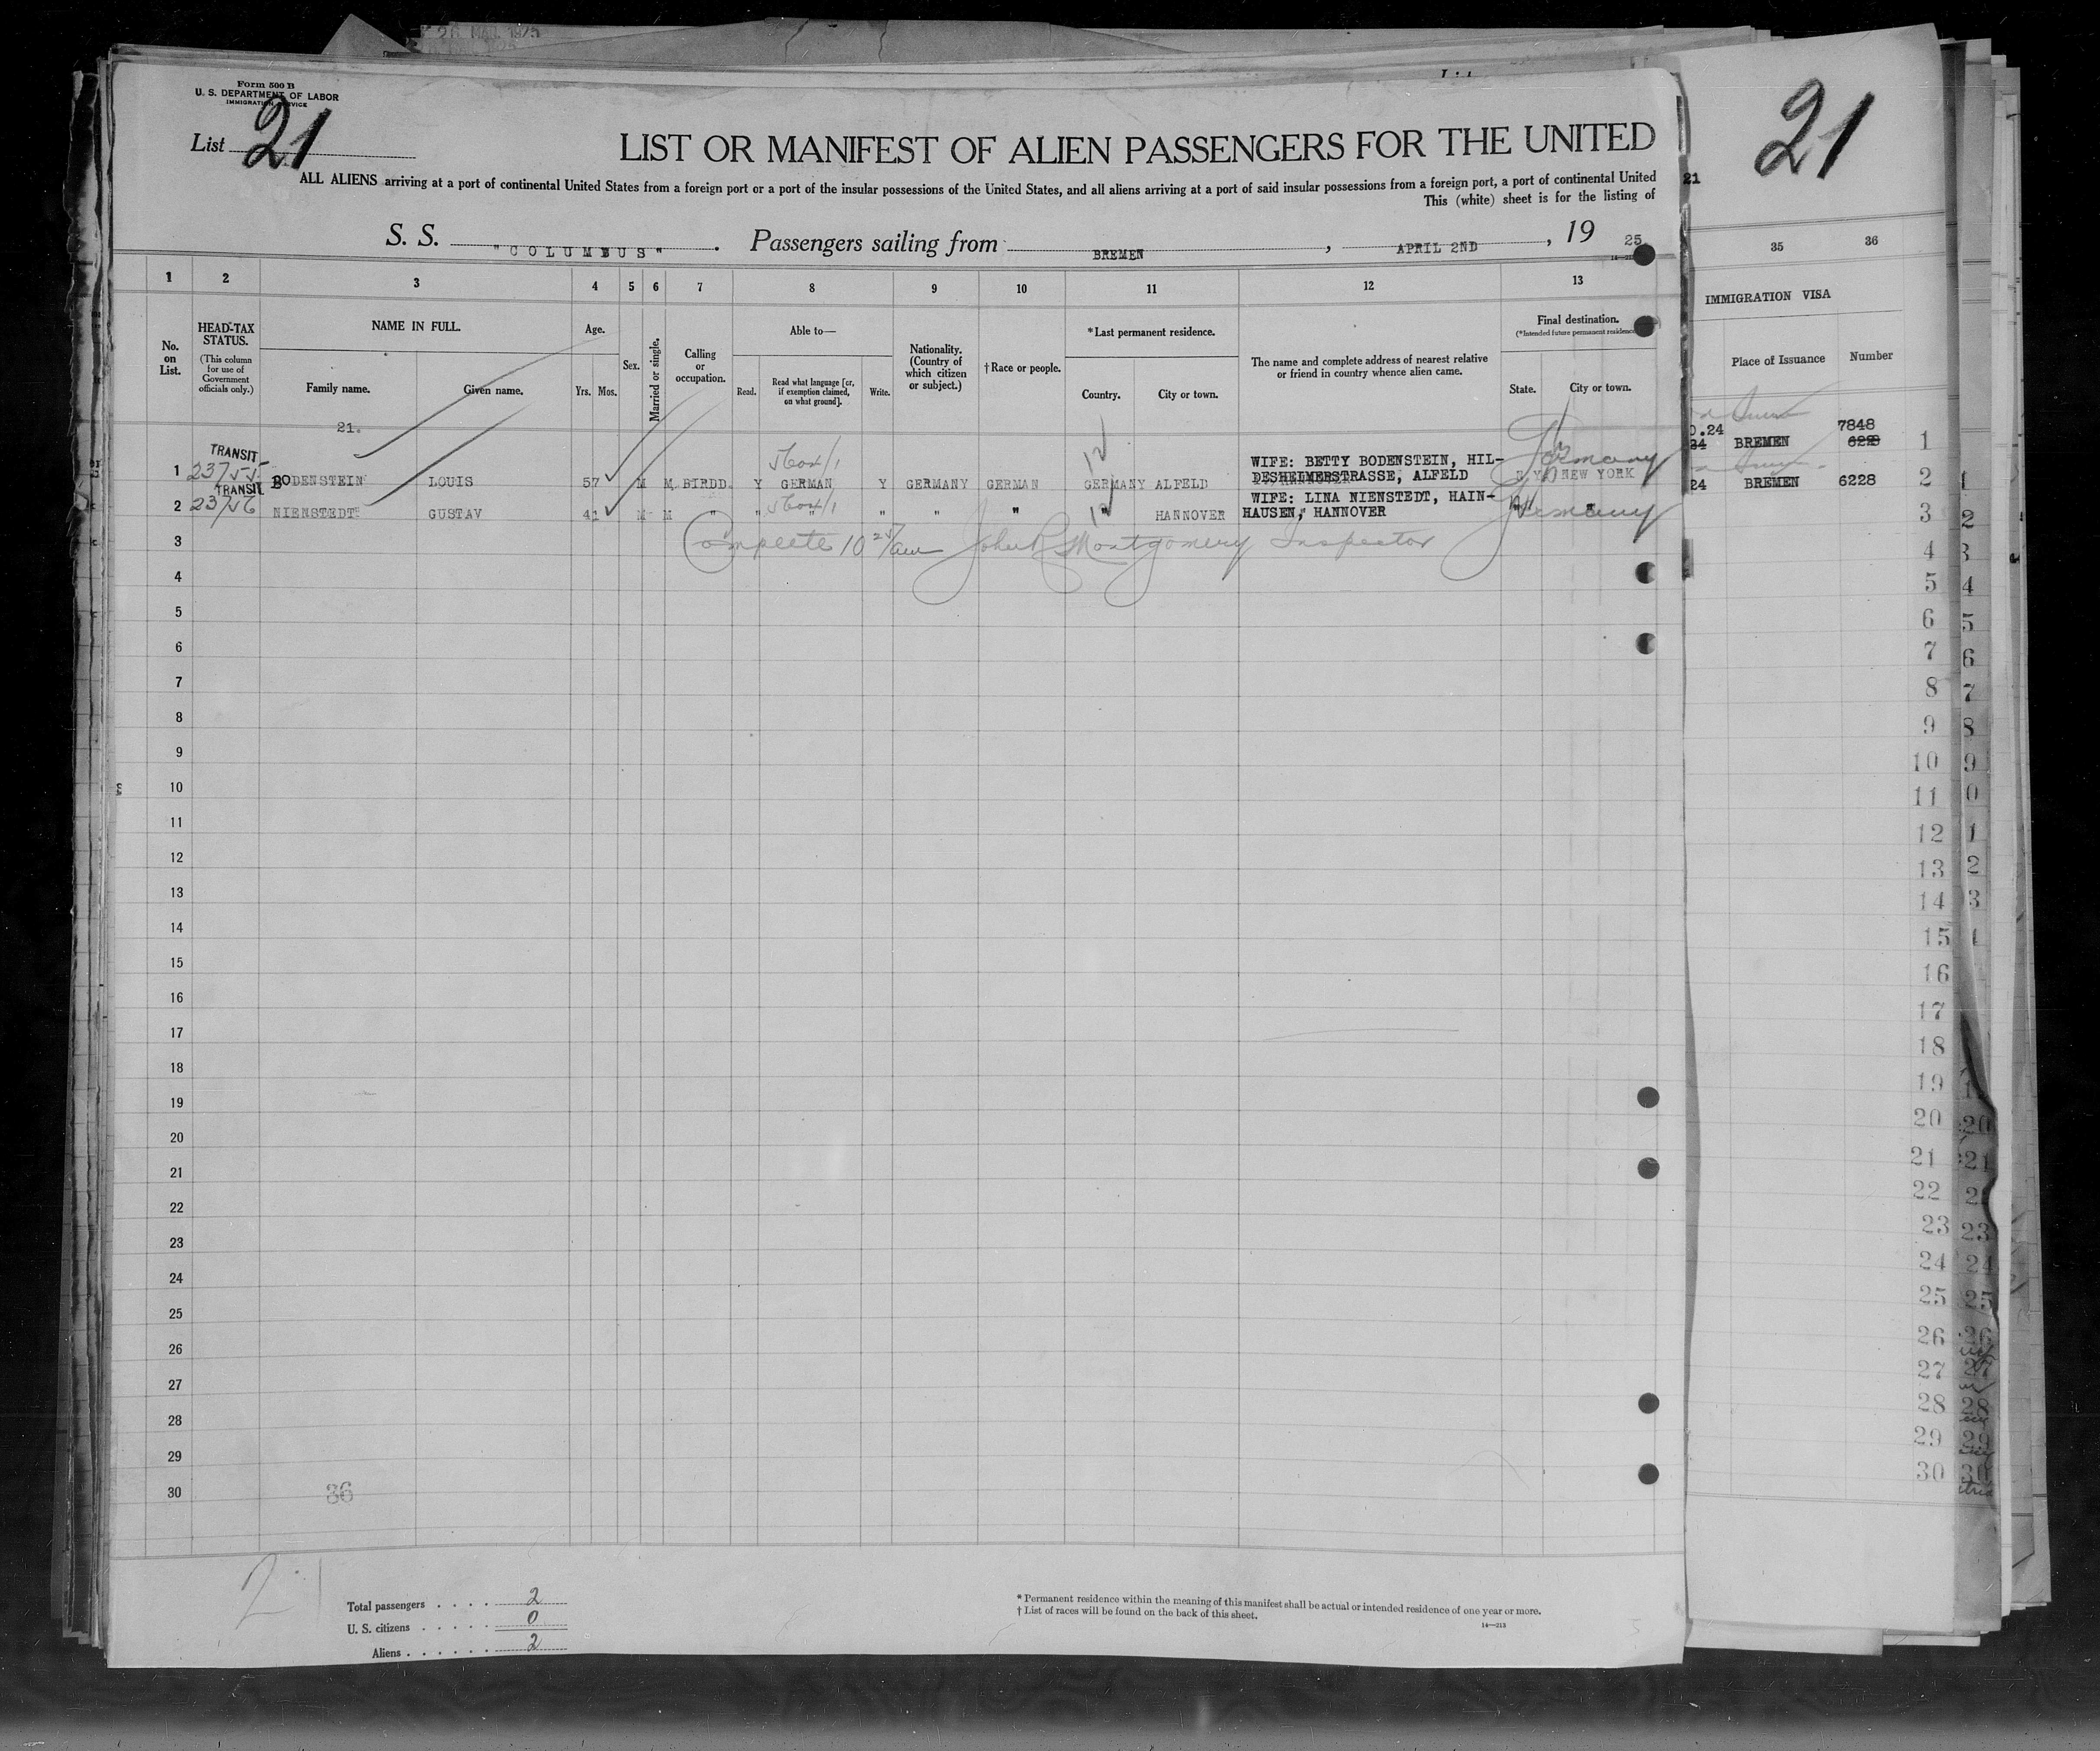 26 MAR. 1925
Form 500 B
U. S. DEPARTMENT OF LABOR
IMMIGRATION SERVICE
List 21
LIST OR MANIFEST OF ALIEN PASSENGERS FOR THE UNITED
ALL ALIENS arriving at a port of continental United States from a foreign port or a port of the insular possessions of the United States, and all aliens arriving at a port of said insular possessions from a foreign port, a port of continental United
This (white) sheet is for the listing of
S. S. "COLUMBUS". Passengers sailing from BREMEN, APRIL 2ND, 19 25
1 2 3 4 5 6 7 8 9 10 11 12 13
No. on List.
HEAD-TAX STATUS.
(This column for use of Government officials only.)
NAME IN FULL.
Family name. Given name.
Age.
Yrs. Mos.
Sex.
Married or single.
Calling or occupation.
Able to—
Read. Read what language [or, if exemption claimed, on what ground]. Write.
Nationality. (Country of which citizen or subject.)
† Race or people.
*Last permanent residence.
Country. City or town.
The name and complete address of nearest relative or friend in country whence alien came.
Final destination.
(*Intended future permanent residence
State. City or town.
21.
TRANSIT
1 23755 BODENSTEIN LOUIS 57 M M BIRDD. Y GERMAN Y GERMANY GERMAN GERMANY ALFELD WIFE: BETTY BODENSTEIN, HIL-
DESHEIMERSTRASSE, ALFELD N.Y. NEW YORK
Germany
TRANSIT
2 23756 NIENSTEDT GUSTAV 41 M M " " " " " " " HANNOVER WIFE: LINA NIENSTEDT, HAIN-
HAUSEN, HANNOVER " "
Germany
3 Complete 10 25/am John R Montgomery Inspector
4
5
6
7
8
9
10
11
12
13
14
15
16
17
18
19
20
21
22
23
24
25
26
27
28
29
30
36
21
Total passengers . . . . 2
U. S. citizens . . . . . 0
Aliens . . . . . . 2
* Permanent residence within the meaning of this manifest shall be actual or intended residence of one year or more.
† List of races will be found on the back of this sheet.
14—213
21
21
35 36
IMMIGRATION VISA
Place of Issuance Number
7848
.24 BREMEN 1
24 BREMEN 6228 2
3
4
5
6
7
8
9
10
11
12
13
14
15
16
17
18
19
20
21
22
23
24
25
26
27
28
29
30